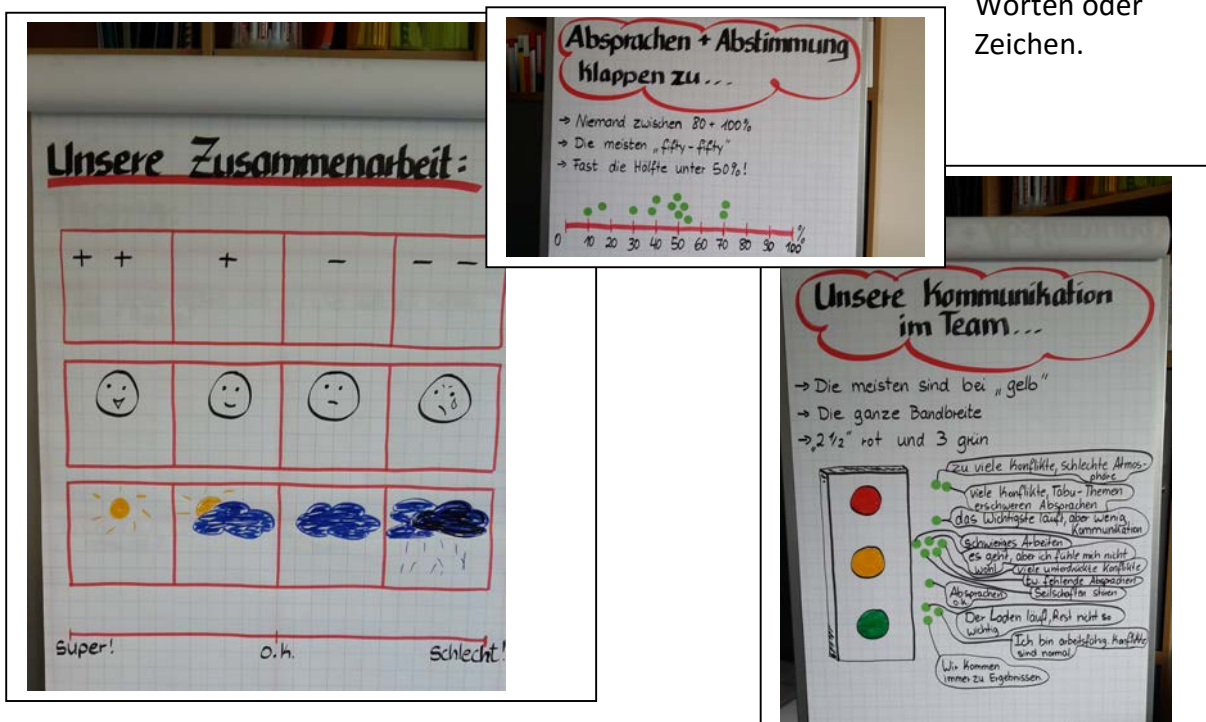 Worten oder
Zeichen.
Unsere Zusammenarbeit:
+ + + - - -
Super! o.k. Schlecht!
Absprachen + Abstimmung
klappen zu...
→ Niemand zwischen 80 + 100%
→ Die meisten „fifty-fifty"
→ Fast die Hälfte unter 50%!
0 10 20 30 40 50 60 70 80 90 100 %
Unsere Kommunikation
im Team...
→ Die meisten sind bei „gelb"
→ Die ganze Bandbreite
→ „2 1/2" rot und 3 grün
zu viele Konflikte, schlechte Atmos-
phäre
viele Konflikte, Tabu-Themen
erschweren Absprachen
das Wichtigste läuft, aber wenig
Kommunikation
schwieriges Arbeiten
es geht, aber ich fühle mich nicht
wohl
viele unterdrückte Konflikte
fehlende Absprachen
Seilschaften stören
Absprachen
o.k.
Der Laden läuft, Rest nicht so
wichtig
Ich bin arbeitsfähig. Konflikte
sind normal
Wir kommen
immer zu Ergebnissen